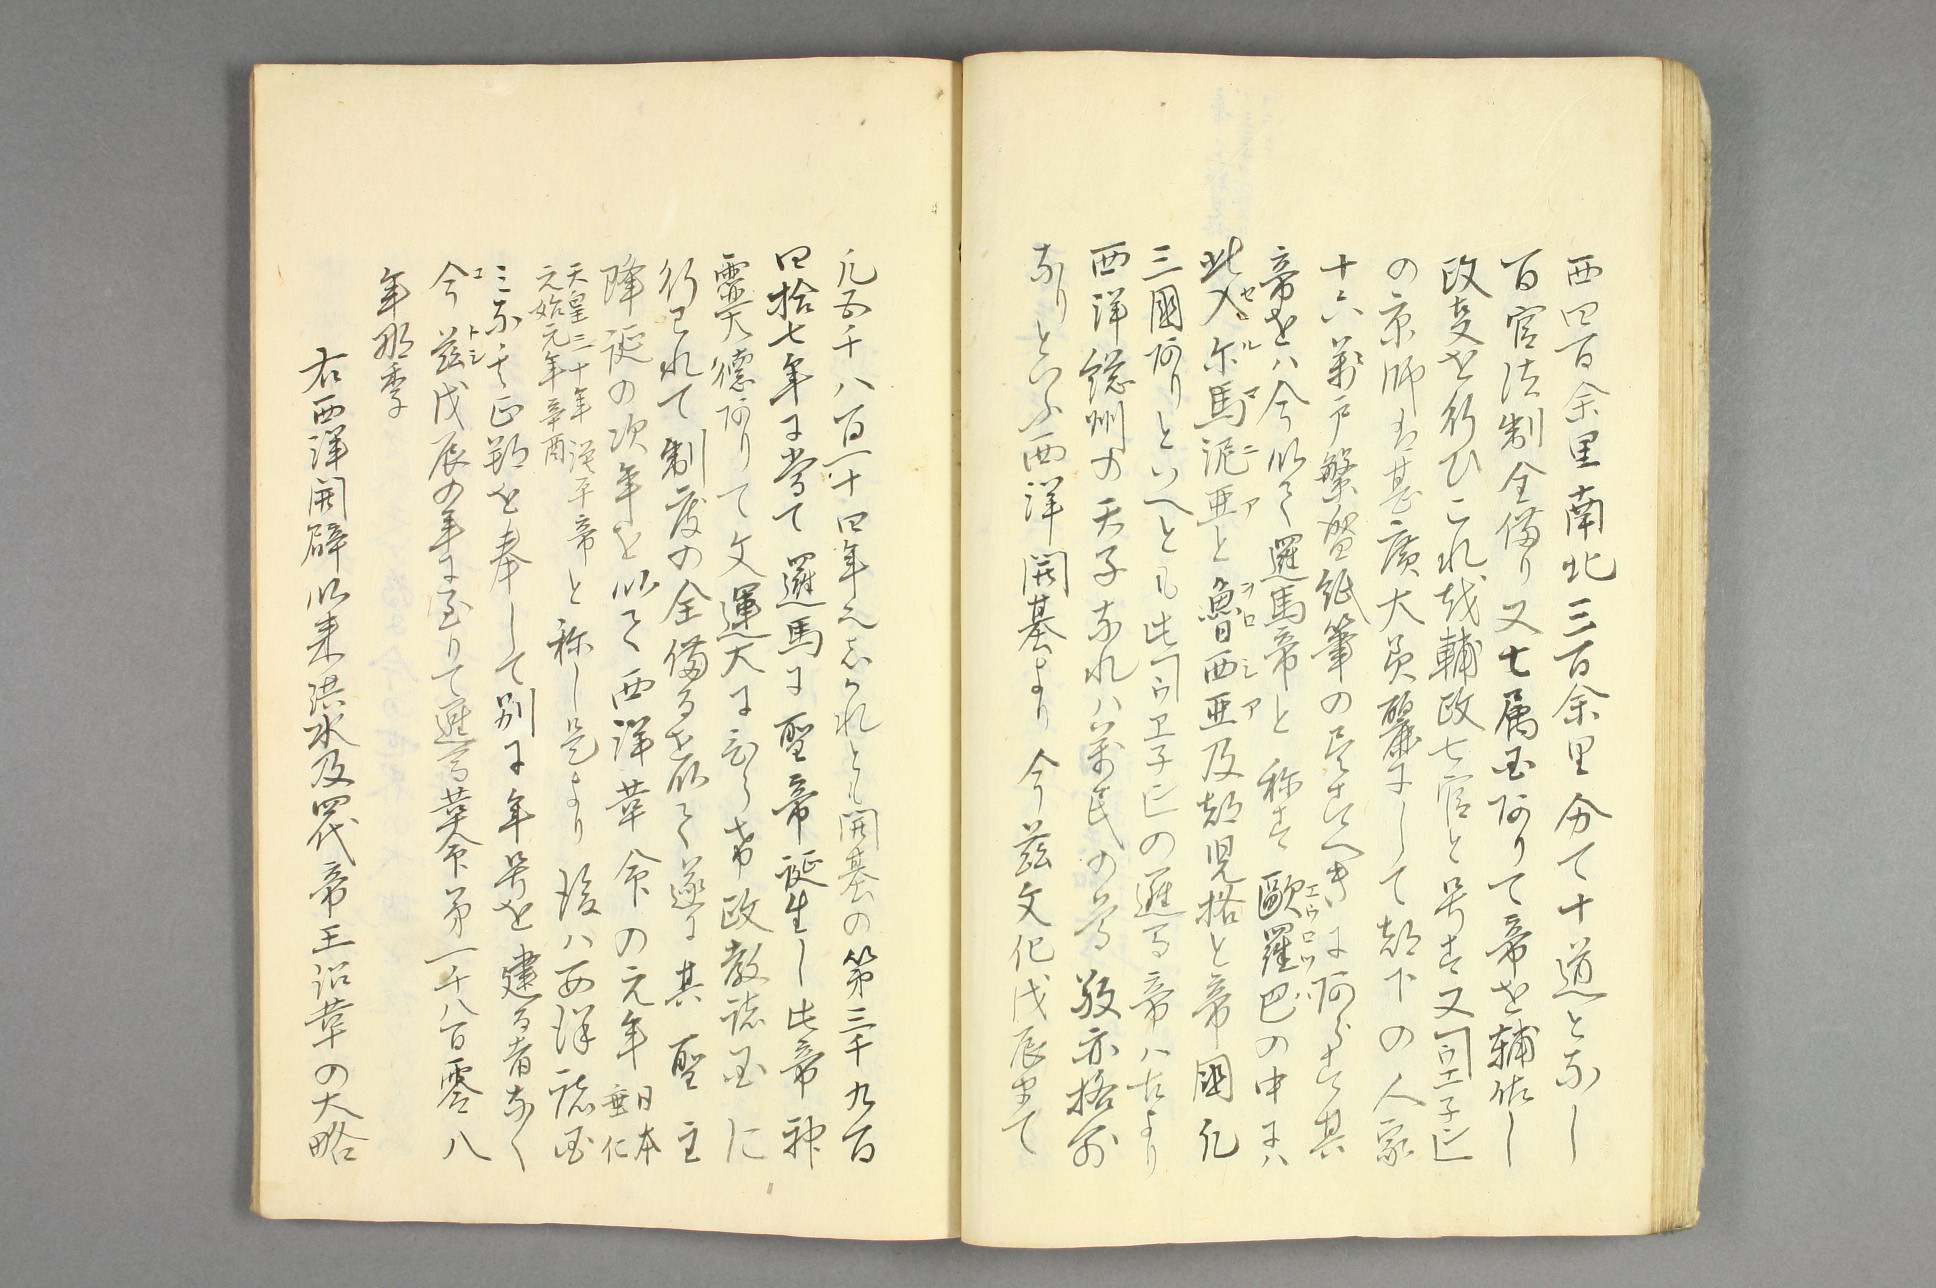 西四百余里南北三百余里分て十道となし
百官法制全備り又七属国阿りて帝を輔佐し
政事を行ひこれ越輔政七官と号す又
の京師は甚広大美麗にして都下の人家
十六萬戸繁盤紙筆の尽すへきに阿らす其
帝をハ今以て邏馬帝と称す歐羅巴の中にハ
エウロツハ
此入尓馬泥亜と魯西亜及都児格と帝國凡
セルマニア ヲロシア
三國阿りといへとも此の邏馬帝ハ古より
西洋総州の天子なれハ萬民の尊敬亦格別
なりといふ西洋開基より今茲文化戊辰まて
凡五千八百一十四年之なれとも開基の第三千九百
四拾七年に当て邏馬に聖帝誕生し此帝神
霊大徳阿りて文運大にひらけ政教諸国に
行はれて制度の全備るを以て遂に其聖主
降誕の次年を以て西洋革命の元年 日本垂仁
天皇三十年漢平帝
元始元年辛酉
と称し是より後ハ西洋諸国
ミな其正朔を奉して別に年号を建る者なく
今茲戊辰の年に至りて邏馬革命第一千八百零八
コトシ
年那季
右西洋開闢以来洪水及四代帝王沿革の大略